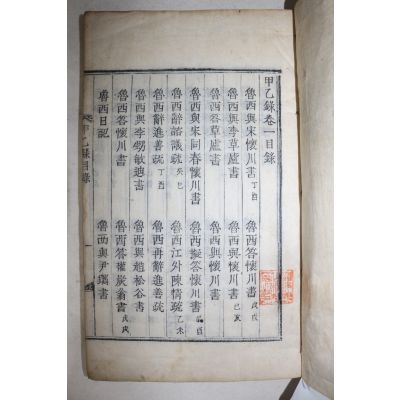 甲乙錄卷一目錄
魯西與宋懷川書 丁酉 魯西答懷川書 戊戌
魯西與李草廬書 魯西與懷川書 己亥
魯西答草廬書 魯西與懷川書
魯西與宋同春懷川書 魯西擬答懷川書 己酉
魯西辭諮議疏 癸巳 魯西江外陳情疏 乙未
魯西辭進善疏 丁酉 魯西再辭進善疏
魯西與李敏迪書 魯西與趙松谷書
魯西答懷川書 魯西答權炭翁書 戊戌
魯西日記 魯西與尹鑴書
甲乙錄目錄 一